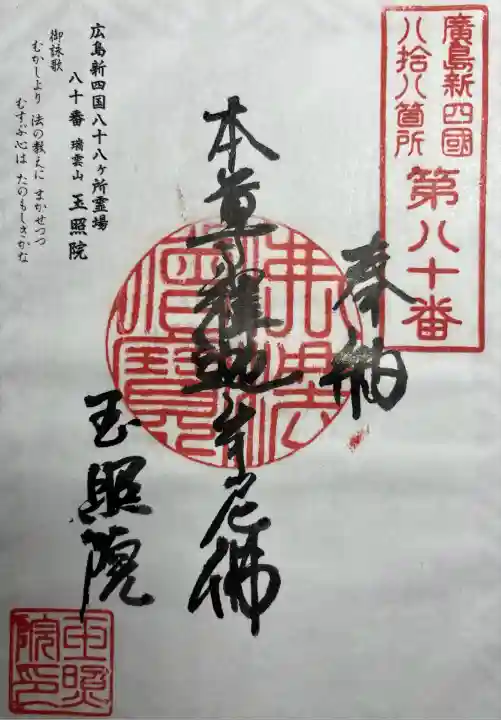 廣島新四國
八拾八箇所
第八十番
奉納
本尊釋迦牟尼佛
佛法僧寶
玉照院
広島新四国八十八ヶ所霊場
八十番 瑞雲山 玉照院
御詠歌
むかしより 法の教えに まかせつつ
むすぶ心は たのもしきかな
玉照
院印